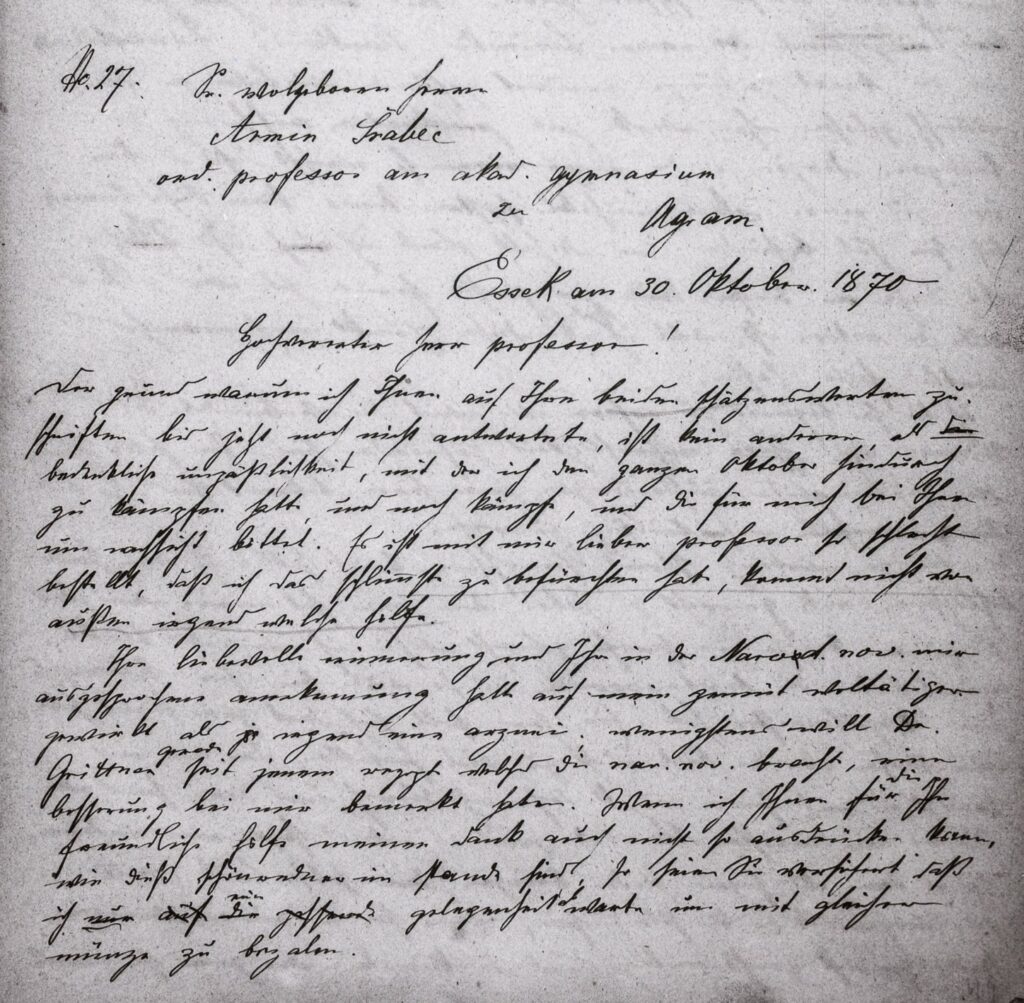 No. 27.
Sr. wolgeboren herrn
Armin Šrabec
ord. professor am akad. gymnasium
zu
Agram.
Essek am 30. Oktober. 1870
Hochvererter herr professor!
Der grund warum ich Ihnen auf Ihre beiden schätzenswerten zu-
schriften bis jetzt noch nicht antwortete, ist kein anderer, als
bedenkliche unpäßlichkeit, mit der ich den ganzen Oktober hindurch
zu kämpfen hatte, und noch kämpfe, und die für mich bei Ihnen
um nachsicht bittet. Es ist mit mir lieber professor so schlecht
bestellt, daß ich das schlimmste zu befürchten habe, kommt nicht von
außen irgend welche hilfe.
Ihre liebevolle erinnerung und Ihre in der Narod. nov. mir
ausgesprochene anerkennung hatte auf mein gemüt woltätiger
gewirkt als je irgend eine arznei; wenigstens will Dr.
Grittner gerade seit jenem rezept welches die nar. nov. bracht, eine
besserung bei mir bemerkt haben. Wenn ich Ihnen für die Ihre
freundliche hilfe meinen dank auch nicht so ausdrücken kann,
wie dieß schönredner im stande sind, so seien Sie versichert daß
ich nur auf die eine passende gelegenheit warte um mit gleicher
münze zu bezalen.